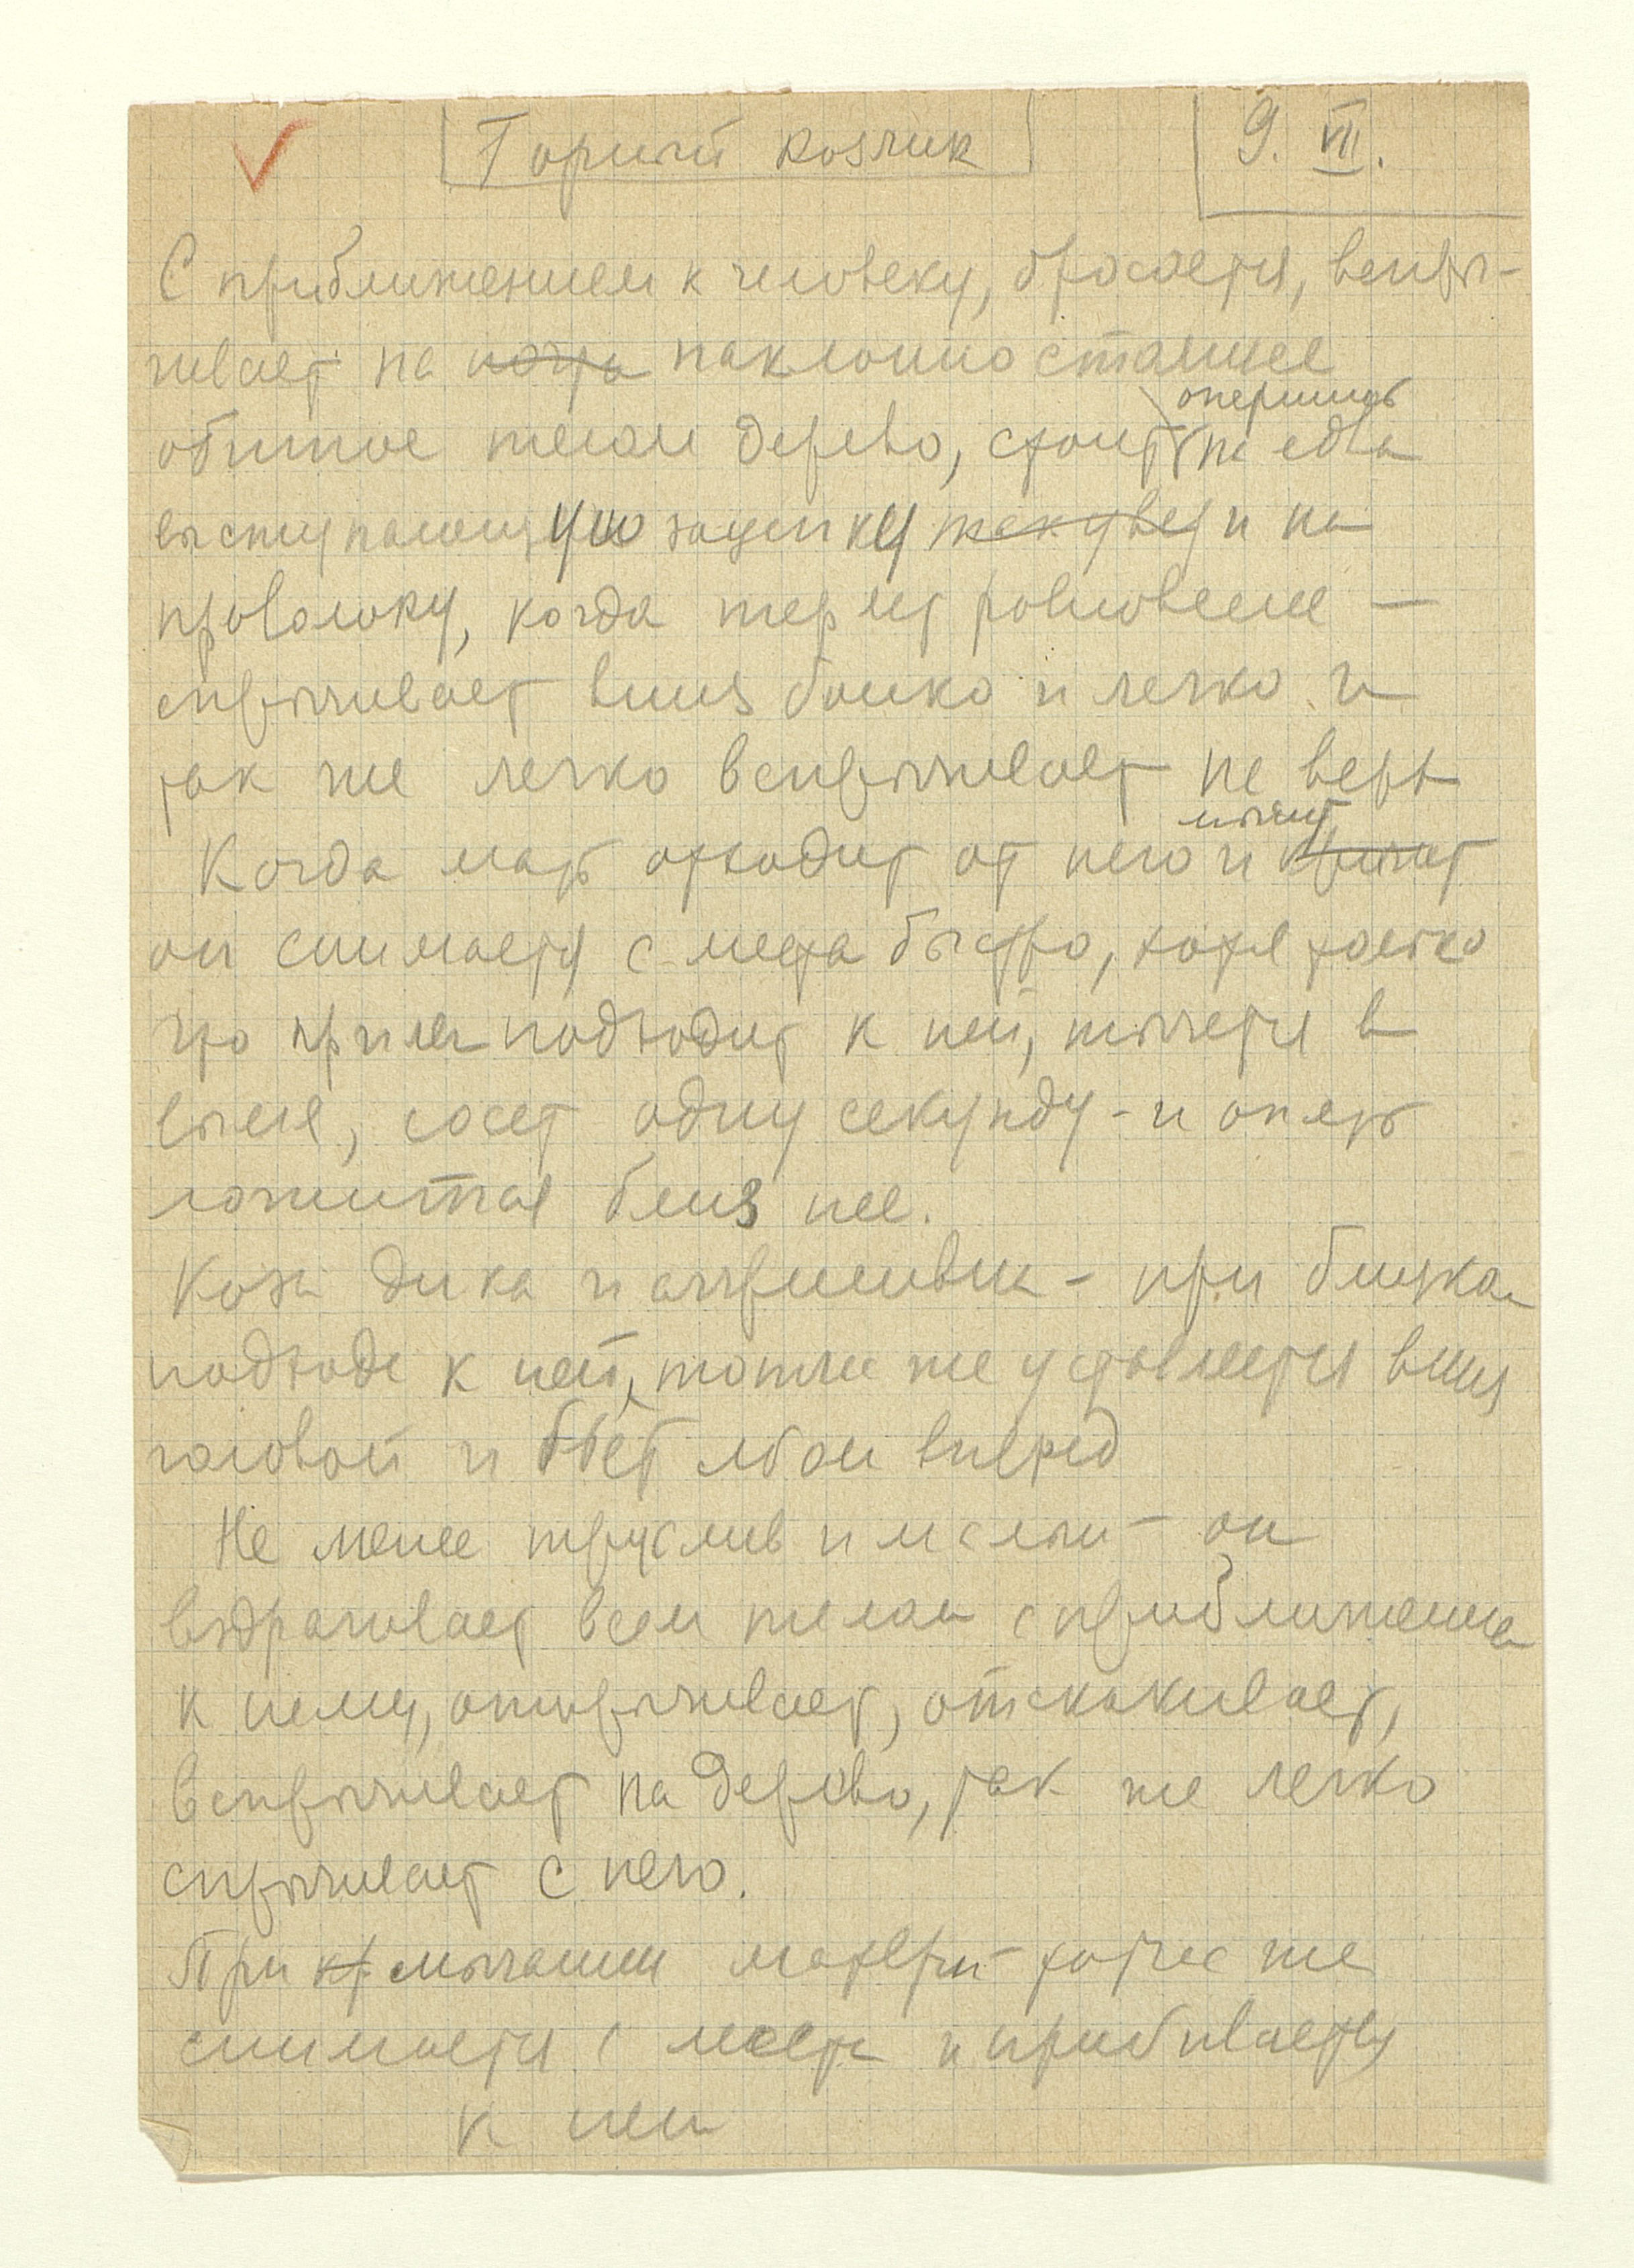 Горный козлик
9. VII.
С приближением к человеку, бросается, вспры-
гивает на почти наклонно стоящее
обитое телом дерево, стоит опершись на едва
выступающую зацепку и на
проволоку, когда теряет равновесие —
спрыгивает вниз бойко и легко и
так же легко вспрыгивает на верх
Когда мать отходит от него и мычит кричит
он снимается с места быстро, хотя только
что прилег подходит к ней, тычется в
вымя, сосет одну секунду - и опять
ложится близ нее.
Коза дика и - при близком
подходе к ней, тотчас же уставляется вниз
головой и бьет лбом вперед
Не менее труслив и малыш - он
вздрагивает всем телом с приближением
к нему, отпрыгивает, отскакивает,
вспрыгивает на дерево, так же легко
спрыгивает с него.
При кр мычании матери - тотчас же
снимается с места и прибивается
к ней